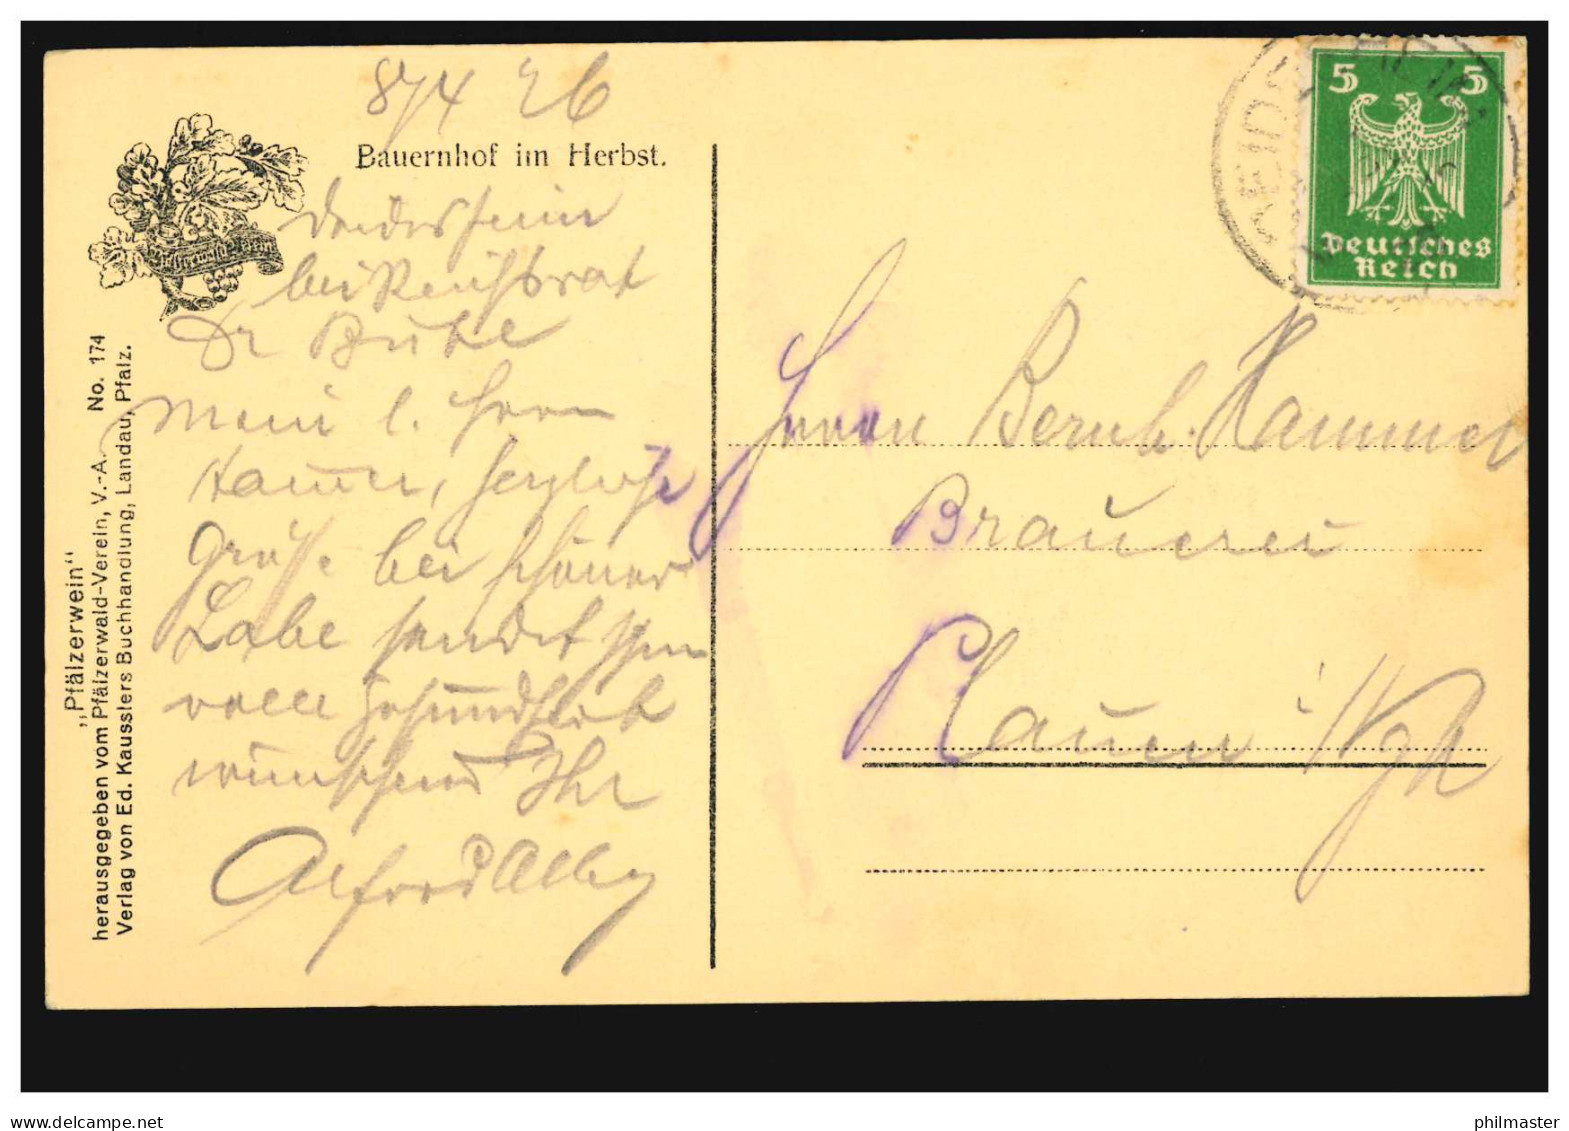 8/4 26
Bauernhof im Herbst.
Deidesheim
bei Reichsrat
Dr Buhl
Mein l. Herrn
Hammer, herzliche
Grüße bei schöner
Labe sendet Ihnen
volle Gesundheit
wünschend Ihr
Alfred
„Pfälzerwein“
herausgegeben vom Pfälzerwald-Verein, V.-A. No. 174
Verlag von Ed. Kausslers Buchhandlung, Landau, Pfalz.
Pfälzerwald-Verein
5 5
Deutsches
Reich
DEIDESHEIM
Herrn Bernh. Hammer
Brauerei
Plauen i/Vgtl
philmaster